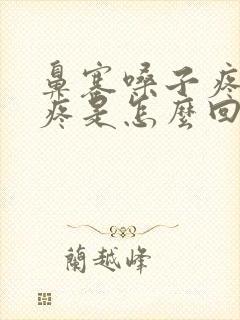 鼻塞嗓子疼
疼是怎麼回
蘭越峰